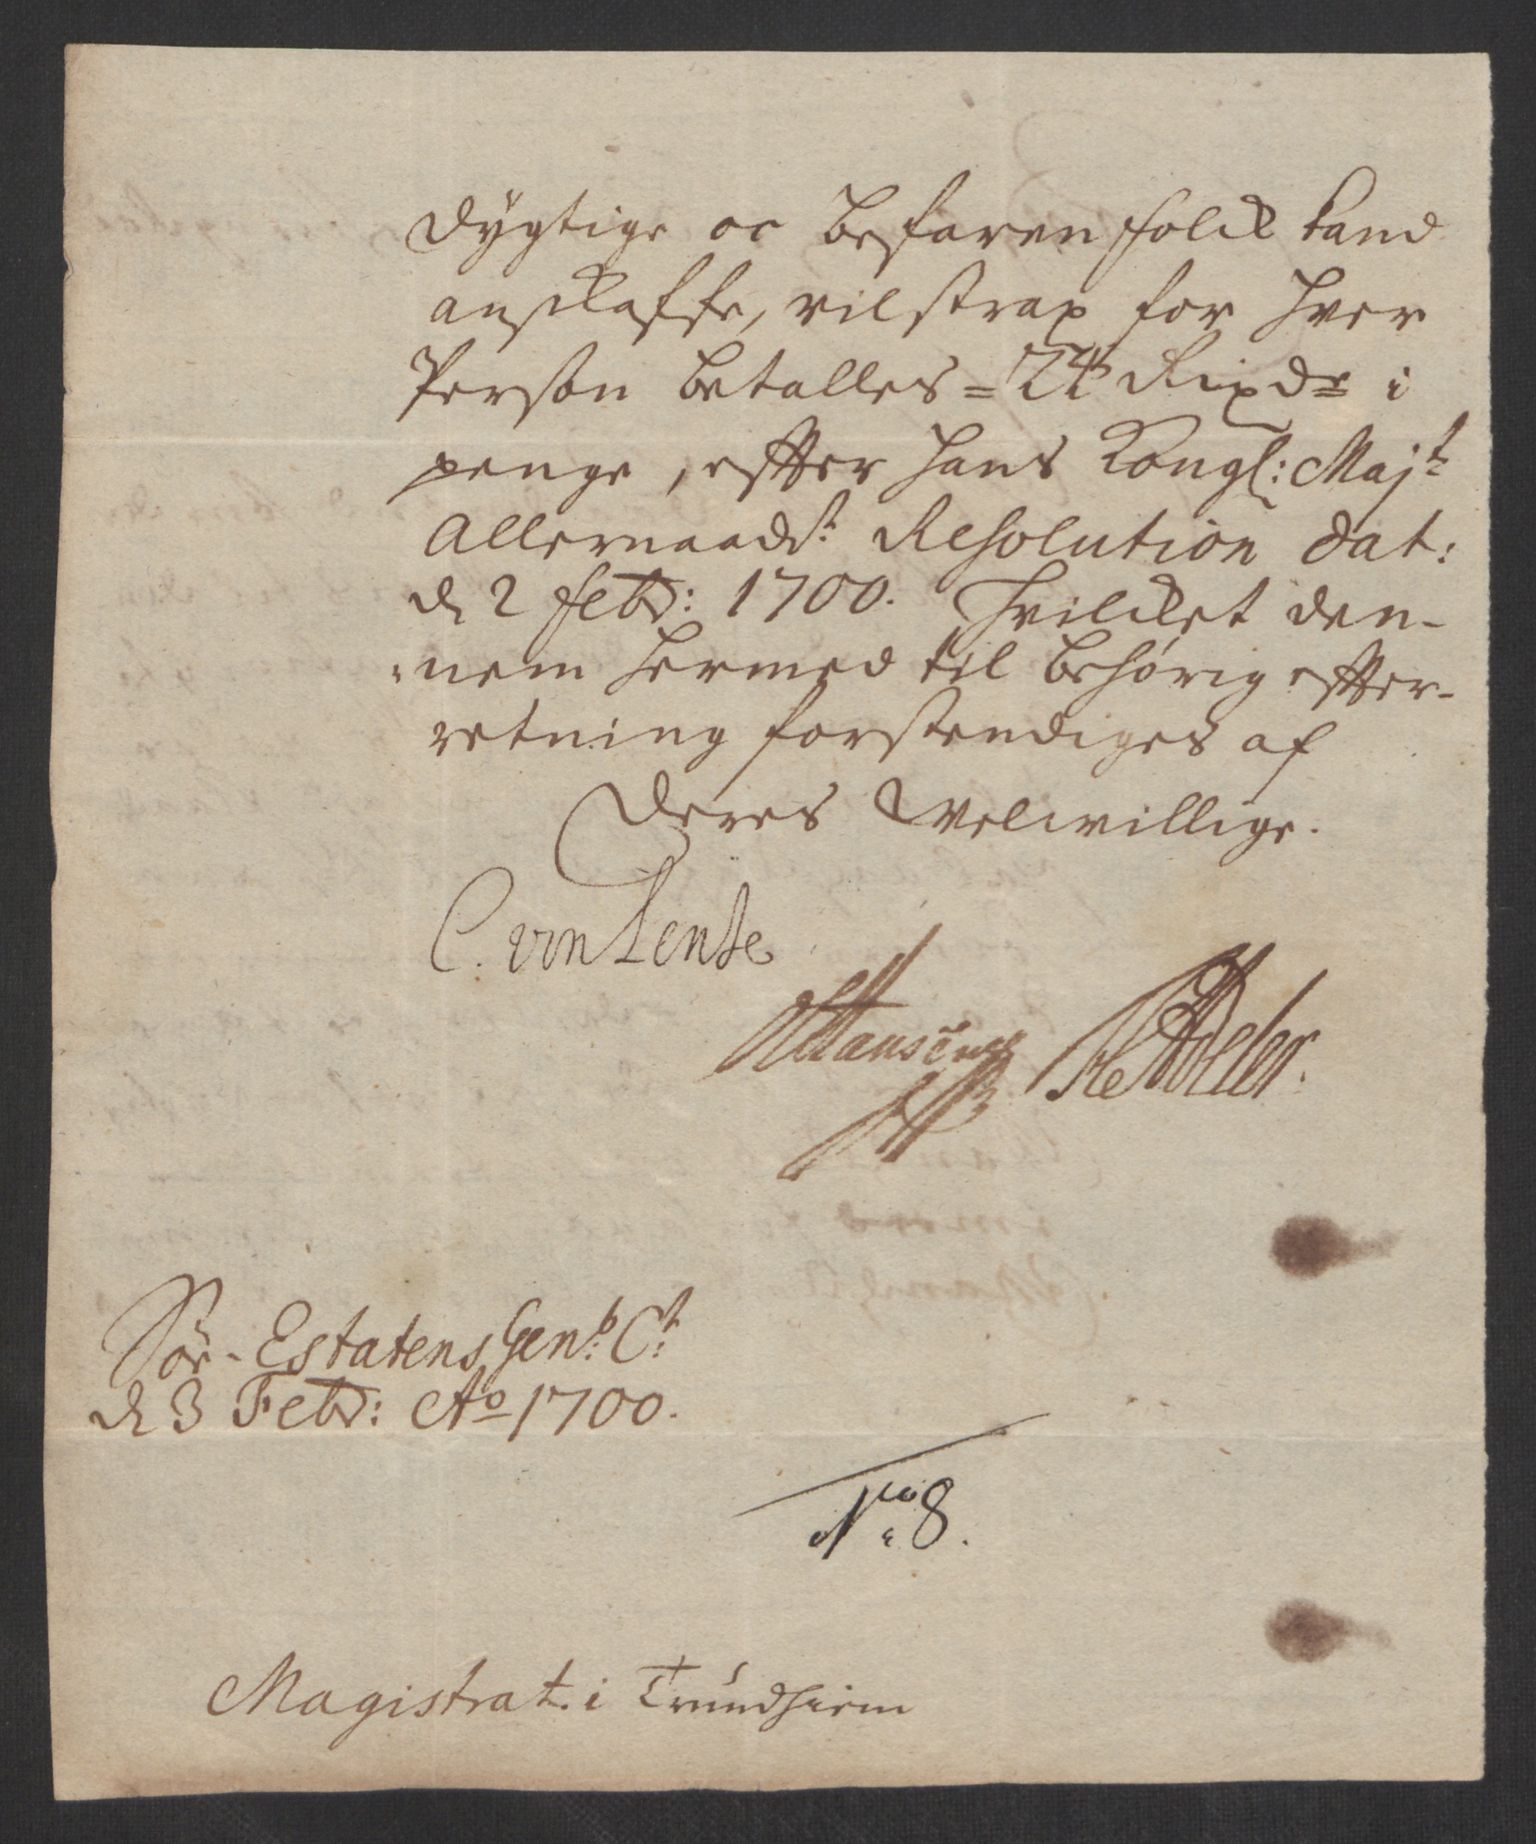 dygtige oc befaren folck kand
anskaffe, vil strax for hver
Person betalles = 24 Rixdr i
penge, effter hans Kongl: Majt
Allernaadst Resolution dat:
d 2 febr: 1700. Hvilcket den-
nem hermed til behørig effter-
retning forstendiges af
Deres Welwillige.
C. von Lente
Söe-Estatens Gen. Ct.
d 3 Febr: Ao 1700.
No 8.
Magistrat. i Trundhiem